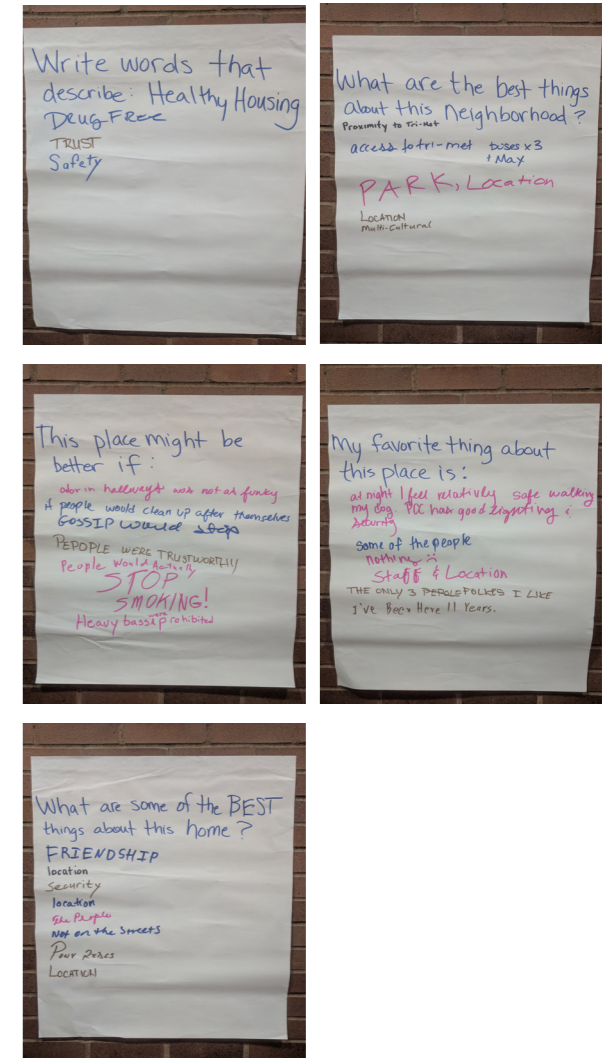 Write words that
describe: Healthy Housing
DRUG FREE
TRUST
Safety
What are the best things
about this Neighborhood?
Proximity to Tri-Met
access to tri-met buses x3
+ Max
PARK, Location
LOCATION
Multi-Cultural
This place might be
better if:
odor in hallways was not as funky
if people would clean up after themselves
GOSSIP would stop
PEPOPLE WERE TRUSTWORTHY
People would Actually
STOP
SMOKING!
Heavy bass prohibited
My favorite thing about
this place is:
at night I feel relativly safe walking
my dog. PCC has good lighting &
Security
some of the people
nothing :(
Staff & Location
THE ONLY 3 PEOPLE FOLKES I LIKE
I've Been Here 11 Years.
What are some of the BEST
things about this home?
FRIENDSHIP
location
Security
location
The People
Not on the Streets
LOCATION